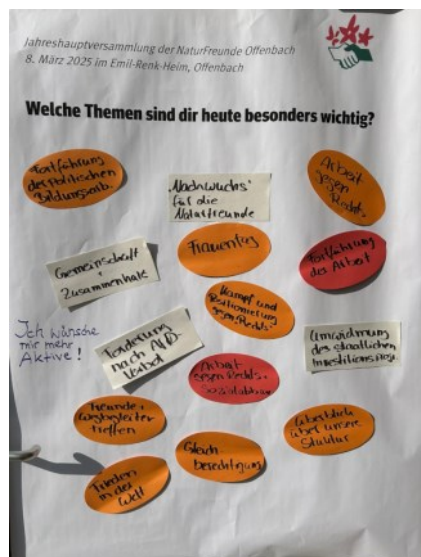 Jahreshauptversammlung der NaturFreunde Offenbach
8. März 2025 im Emil-Renk-Heim, Offenbach
Welche Themen sind dir heute besonders wichtig?
Fortführung
der politischen
Bildungsarb.
Nachwuchs
für die
Naturfreunde
Arbeit
gegen
Rechts
Gemeinschaft
+
Zusammenhalt
Frauentag
Fortführung
der Arbeit
Kampf und
Positionierung
gegen Rechts
Ich wünsche
mir mehr
Aktive!
Forderung
nach AfD
Verbot
Umwidmung
des staatlichen
Arbeit
gegen Rechts.
Sozialabbau
Freunde +
Wegbegleiter
treffen
Gleich
berechtigung
Überblick
über unsere
Struktur
Frieden
in der
Welt